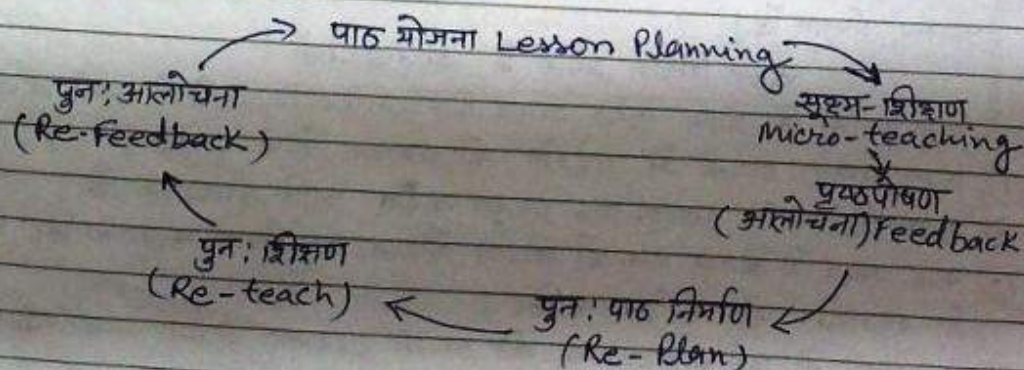 पाठ योजना Lesson Planning
सूक्ष्म-शिक्षण
micro-teaching
प्रष्ठपोषण
(आलोचना) Feedback
पुन: पाठ निर्माण
(Re-Plan)
पुन: शिक्षण
(Re-teach)
पुन: आलोचना
(Re-Feedback)